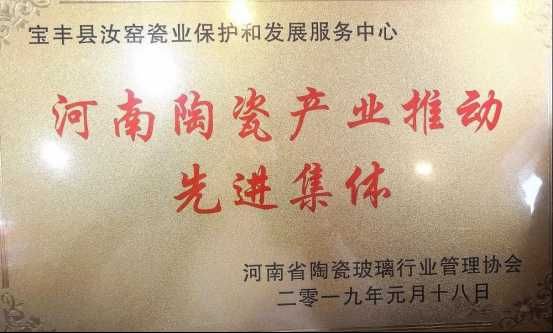 宝丰县汝窑瓷业保护和发展服务中心
河南陶瓷产业推动
先进集体
河南省陶瓷玻璃行业管理协会
二零一九年元月十八日